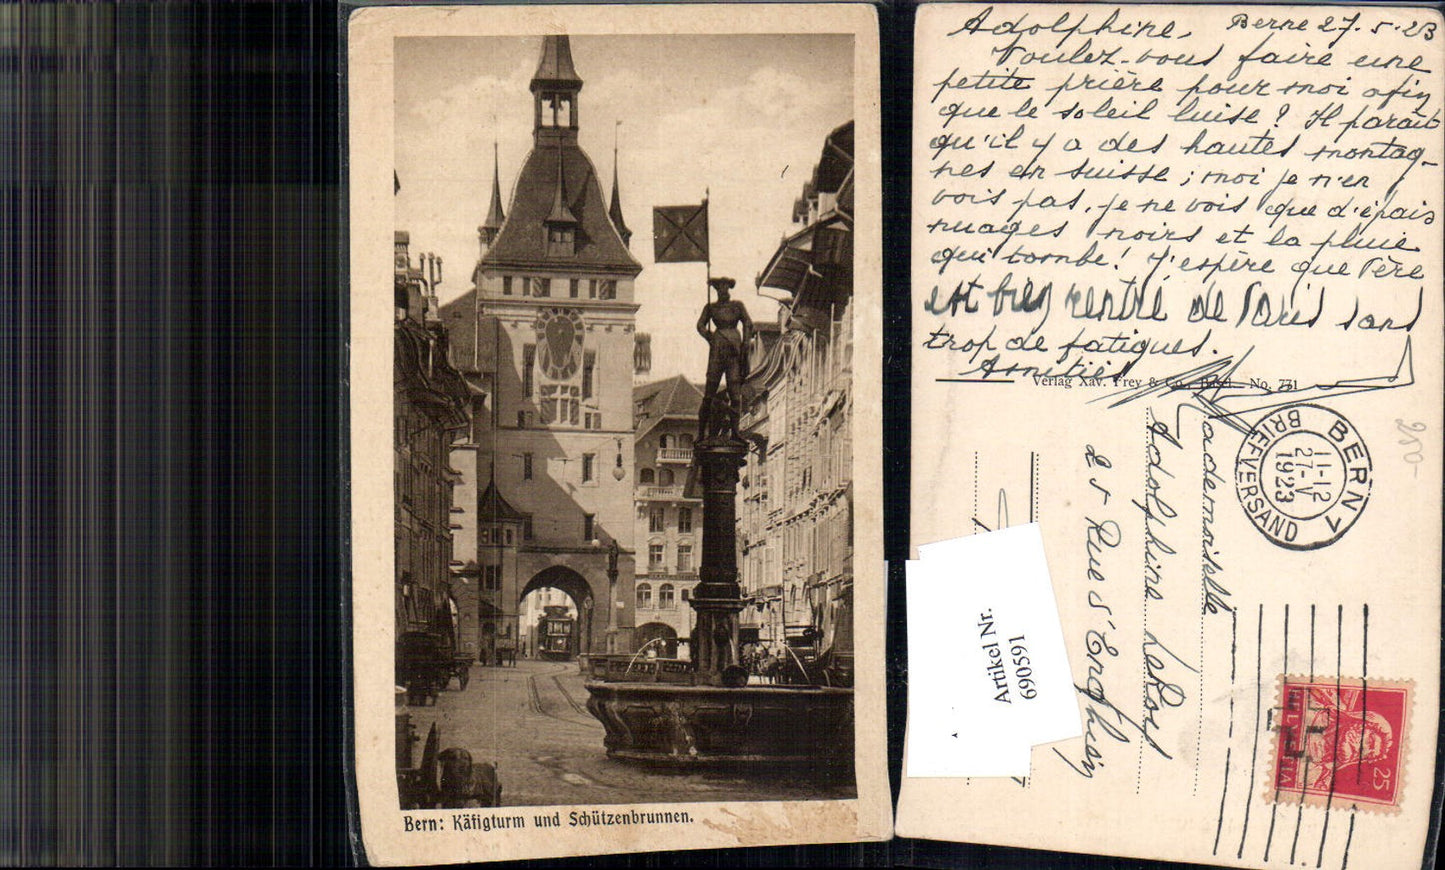 Bern: Käfigturm und Schützenbrunnen.
Adolphine, Berne 27.5.23
Voulez-vous faire une
petite prière pour moi afin
que le soleil luise? Il paraît
qu'il y a des hautes montag-
nes en suisse; moi je n'en
vois pas, je ne vois que d'épais
nuages noirs et la pluie
qui tombe! J'espère que Père
est bien rentré de Paris sans
trop de fatigues.
Amitiés
Verlag Xav. Frey & Co., Basel No. 771
Mademoiselle
Adolphine LeRoy
25 Rue d'Enghien
BERN 1
11-12
27.V
1923
BRIEFVERSAND
HELVETIA
25
Artikel Nr.
690591